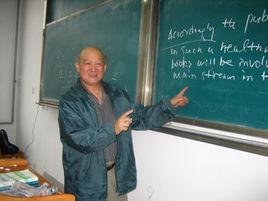 Accordingly the pub
in such a health
books will be invol
main stream in t